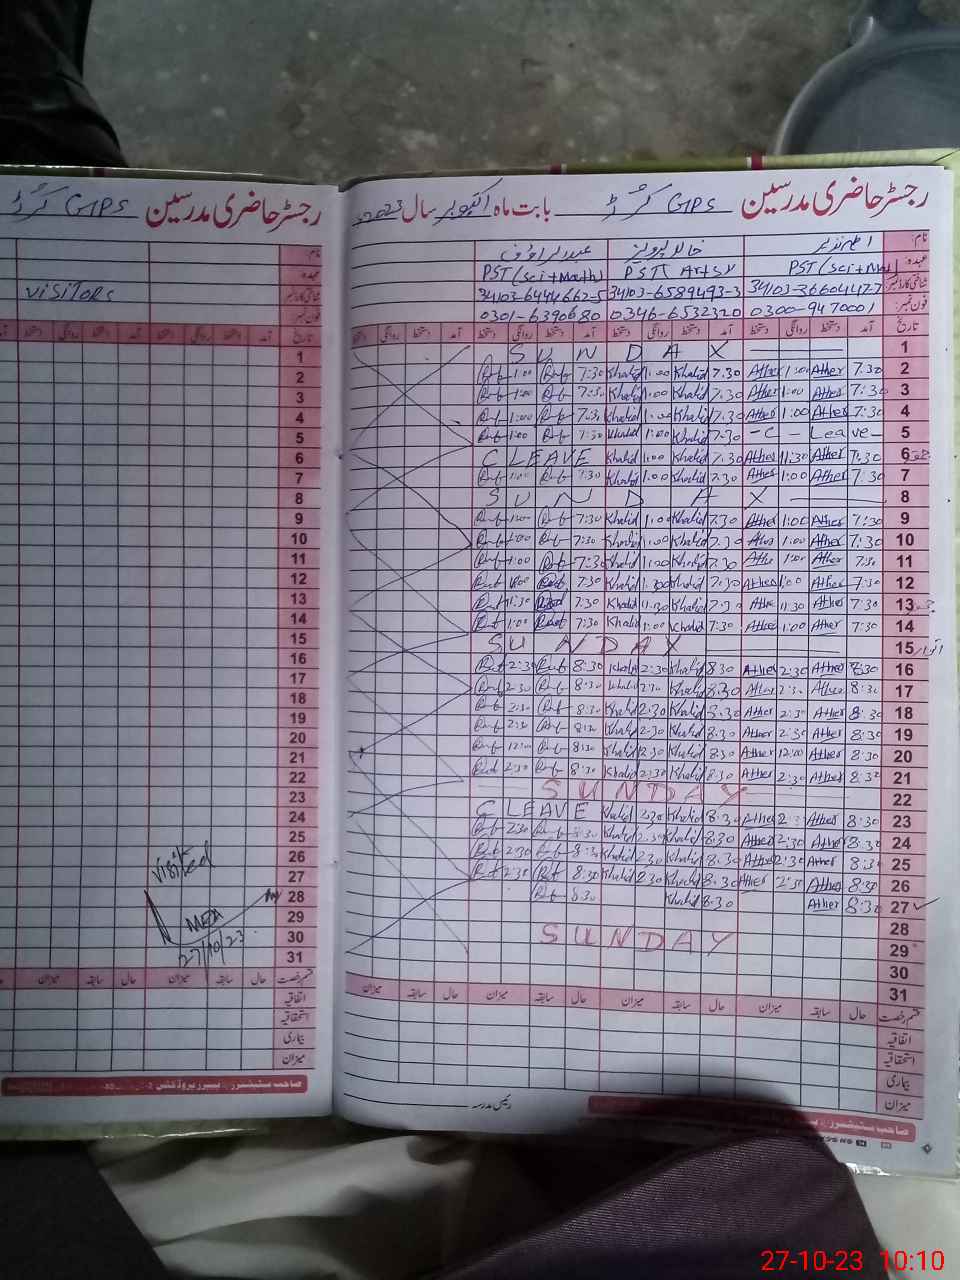 رجسٹر حاضری مدرسین GPS
VISITORS
نام:
عہدہ:
شناختی کارڈ نمبر
فون نمبر:
تاریخ آمد دستخط روانگی دستخط آمد دستخط روانگی دستخط
1
2
3
4
5
6
7
8
9
10
11
12
13
14
15
16
17
18
19
20
21
22
23
24
25
26
27
28
29
30
31
visited
MEA
27/10/23
قسم رخصت حال سابقہ میزان حال سابقہ میزان
اتفاقیہ
استحقاقیہ
بیماری
میزان
رجسٹر حاضری مدرسین GPS بابت ماہ اکتوبر سال 2023
نام: اطہر نذیر خالد پرویز عبدالرؤف
عہدہ: PST (Sci+Mat) PST (Arts) PST (Sci+Math)
شناختی کارڈ نمبر 34103-3660442-7 34103-6589493-3 34103-6444662-5
فون نمبر: 0300-9470001 0346-6532320 0301-6390680
تاریخ آمد دستخط روانگی دستخط آمد دستخط روانگی دستخط آمد دستخط روانگی دستخط آمد دستخط روانگی دستخط
SUNDAY 1
1:00 7:30 Khalid 1:00 Khalid 7:30 Ather 1:00 Ather 7:30 2
1:00 7:30 Khalid 1:00 Khalid 7:30 Ather 1:00 Ather 7:30 3
1:00 7:30 Khalid 1:00 Khalid 7:30 Ather 1:00 Ather 7:30 4
1:00 7:30 Khalid 1:00 Khalid 7:30 - C - Leave - 5
C LEAVE Khalid 1:00 Khalid 7:30 Ather 11:30 Ather 7:30 6 جمعہ
1:00 7:30 Khalid 1:00 Khalid 7:30 Ather 1:00 Ather 7:30 7
SUNDAY 8
1:00 7:30 Khalid 1:00 Khalid 7:30 Ather 1:00 Ather 7:30 9
1:00 7:30 Khalid 1:00 Khalid 7:30 Ather 1:00 Ather 7:30 10
1:00 7:30 Khalid 1:00 Khalid 7:30 Ather 1:00 Ather 7:30 11
1:00 7:30 Khalid 1:00 Khalid 7:30 Ather 1:00 Ather 7:30 12
11:30 7:30 Khalid 11:30 Khalid 7:30 Ather 11:30 Ather 7:30 13 جمعہ
1:00 7:30 Khalid 1:00 Khalid 7:30 Ather 1:00 Ather 7:30 14
SUNDAY 15 اتوار
2:30 8:30 Khalid 2:30 Khalid 8:30 Ather 2:30 Ather 8:30 16
2:30 8:30 Khalid 2:30 Khalid 8:30 Ather 2:30 Ather 8:30 17
2:30 8:30 Khalid 2:30 Khalid 8:30 Ather 2:30 Ather 8:30 18
2:30 8:30 Khalid 2:30 Khalid 8:30 Ather 2:30 Ather 8:30 19
12:00 8:30 Khalid Khalid 8:30 Ather 12:00 Ather 8:30 20
2:30 8:30 Khalid 2:30 Khalid 8:30 Ather 2:30 Ather 8:30 21
SUNDAY 22
C LEAVE Khalid 2:30 Khalid 8:30 Ather 2:3 Ather 8:30 23
2:30 8:30 Khalid 2:30 Khalid 8:30 Ather 2:30 Ather 8:30 24
2:30 8:30 Khalid 2:30 Khalid 8:30 Ather 2:30 Ather 8:30 25
2:30 8:30 Khalid 2:30 Khalid 8:30 Ather 2:30 Ather 8:30 26
8:30 Khalid 8:30 Ather 8:30 27
28
SUNDAY 29
30
31
قسم رخصت حال سابقہ میزان حال سابقہ میزان حال سابقہ میزان حال سابقہ میزان
اتفاقیہ
استحقاقیہ
بیماری
میزان
رئیس مدرسہ
27-10-23 10:10